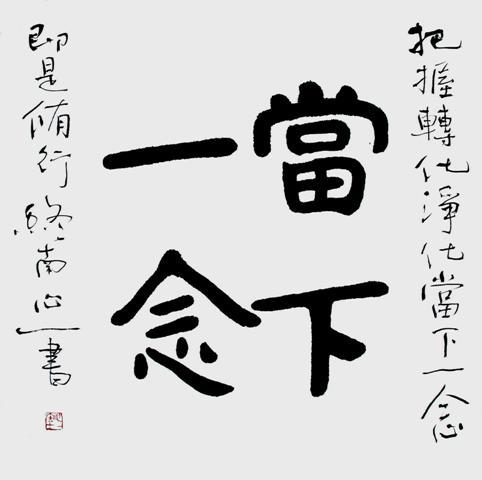 當下
一念
把握轉化淨化當下一念
即是脩行終南心一書